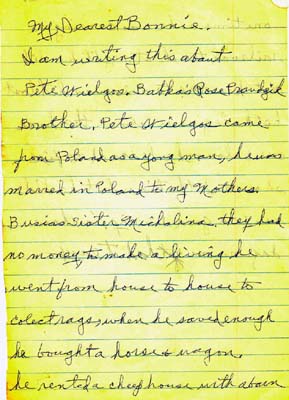 My Dearest Bonnie.
I am writing this about
Pete Wielgos. Babka's Rose Prandzik
Brother. Pete Wielgos came
from Poland as a yong man, he was
marred in Poland to my Mothers.
Busias Sister Michalina. they had
no money, to make a living he
went from house to house to
colect rags, when he saved enough
he bought a horse & wagon.
he rented a cheep house with a barn